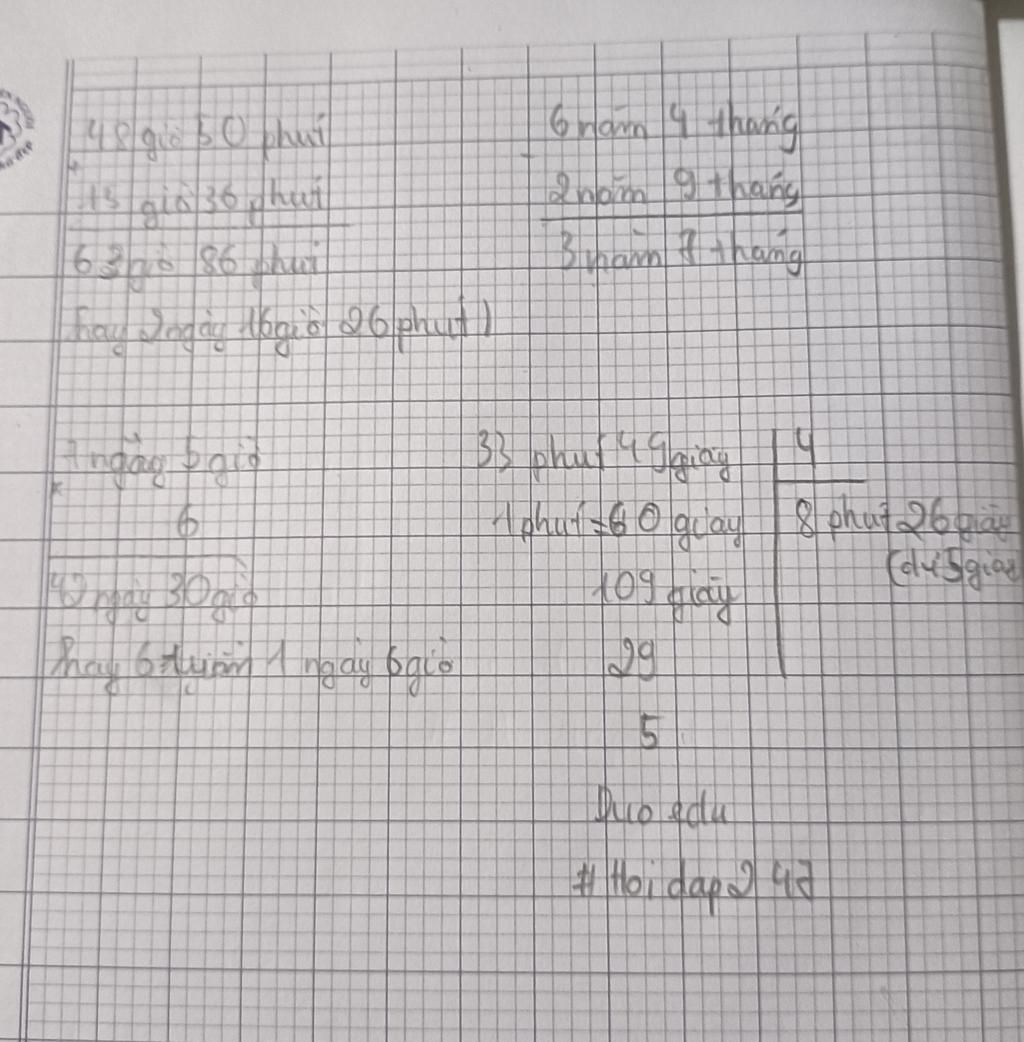 48 giờ 50 phút
+
15 giờ 36 phút
63 giờ 86 phút
hay 2 ngày 16 giờ 26 phút)
6 năm 4 tháng
-
2 năm 9 tháng
3 năm 7 tháng
7 ngày 5 giờ
x
6
42 ngày 30 giờ
hay 6 tuần 1 ngày 6 giờ
33 phút 49 giây 4
1 phút = 60 giây 8 phút 26 giây
109 giây (dư 5 giây
29
5
Duo edu
# Hoidap247